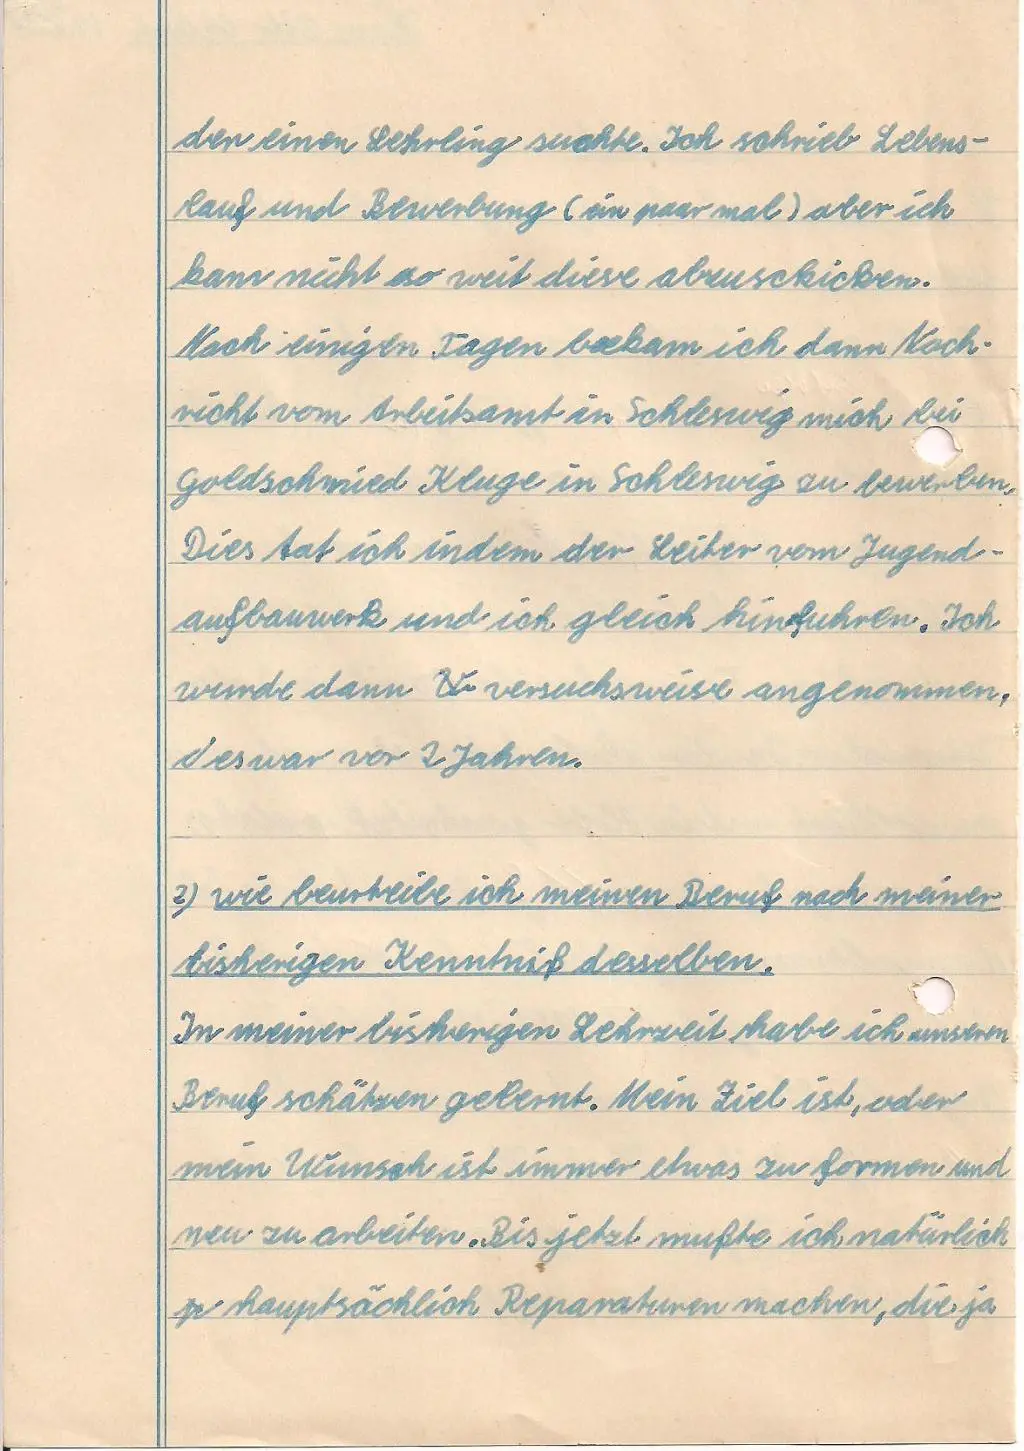 der einen Lehrling suchte. Ich schrieb Lebens-
lauf und Bewerbung (ein paar mal) aber ich
kam nicht so weit diese abzuschicken.
Nach einigen Tagen bekam ich dann Nach-
richt vom Arbeitsamt in Schleswig mich bei
Goldschmied Kluge in Schleswig zu bewerben.
Dies tat ich indem der Leiter vom Jugend-
aufbauwerk und ich gleich hinfuhren. Ich
wurde dann versuchsweise angenommen,
des war vor 2 Jahren.
2) wie beurteile ich meinen Beruf nach meiner
bisherigen Kenntniß desselben.
In meiner bisherigen Lehrzeit habe ich unseren
Beruf schätzen gelernt. Mein Ziel ist, oder
mein Wunsch ist immer etwas zu formen und
neu zu arbeiten. Bis jetzt mußte ich natürlich
hauptsächlich Reparaturen machen, die ja